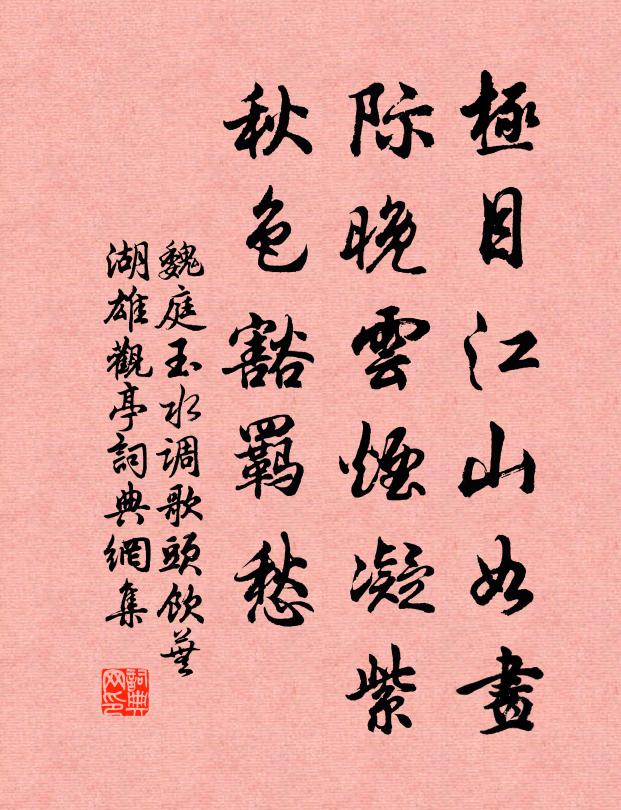 極目江山如畫
际晚雲煙凝紫
秋色豁羈愁
魏庭玉水调歌頭飲蕪
湖雄觀亭詞典網集
詞典
网印